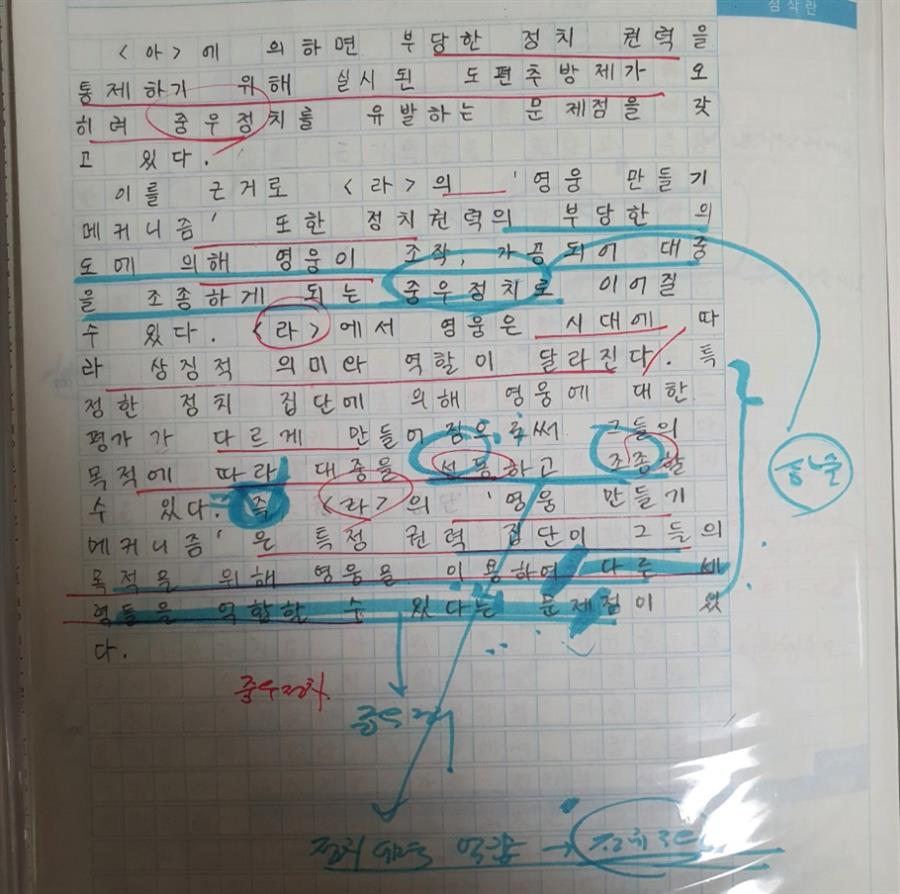 첨삭란
<아>에 의하면 부당한 정치 권력을
통제하기 위해 실시된 도편추방제가 오
히려 중우정치를 유발하는 문제점을 갖
고 있다.
이를 근거로 <라>의 '영웅 만들기
메커니즘' 또한 정치권력의 부당한 의
도에 의해 영웅이 조작, 가공되어 대중
을 조종하게 되는 중우정치로 이어질
수 있다. <라>에서 영웅은 시대에 따
라 상징적 의미와 역할이 달라진다. 특
정한 정치 집단에 의해 영웅에 대한
평가가 다르게 만들어짐으로써 그들의
목적에 따라 대중을 선동하고 조종할
수 있다. 즉 <라>의 '영웅 만들기
메커니즘'은 특정 권력 집단이 그들의
목적을 위해 영웅을 이용하여 다른 세
력들을 억합할 수 있다는 문제점이 있
다.
중우정치